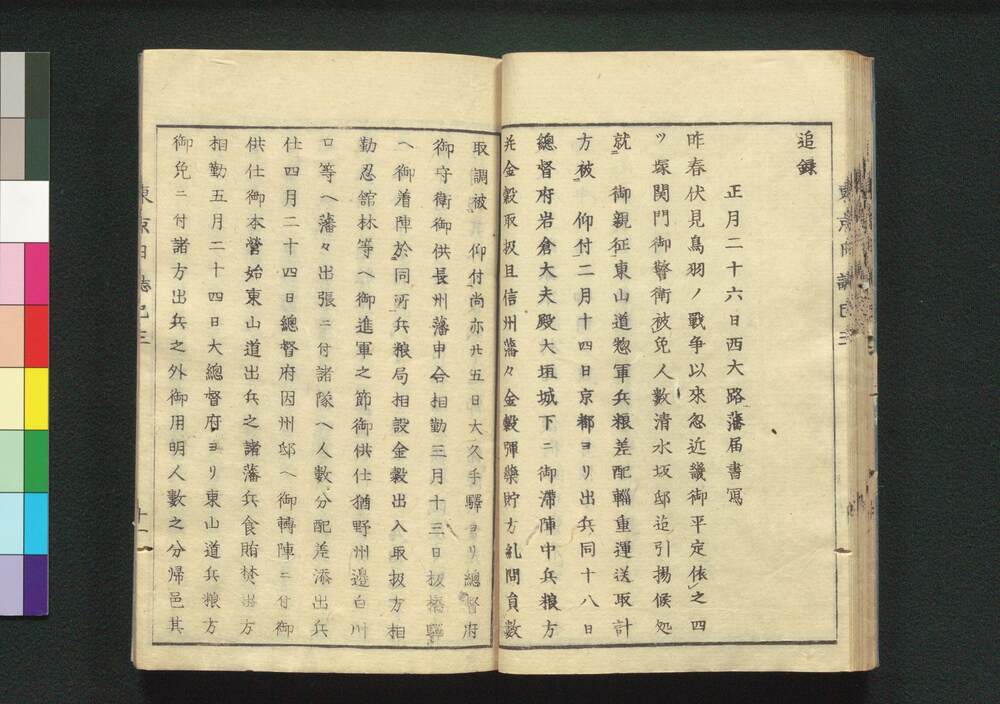 追録
正月二十六日西大路藩届書寫
昨春伏見鳥羽ノ戰争以來忽近畿御平定依之四
ツ塚関門御警衛被免人數清水坂邸迄引揚候処
就　御親征東山道惣軍兵粮差配輜重運送取計
方被　仰付二月十四日京都ヨリ出兵同十八日
總督府岩倉大夫殿大垣城下ニ御滞陣中兵粮方
并金穀取扱且信州藩々金穀彈藥貯方糺問員數
取調被　仰付尚亦廿五日大久手驛ヨリ總督府
御守衛御供長州藩申合相勤三月十三日板橋驛
ヘ御着陣於同所兵粮局相設金穀出入取扱方相
勤忍舘林等ヘ御進軍之節御供仕猶野州邊白川
口等ヘ藩々出張ニ付諸隊ヘ人數分配差添出兵
仕四月二十四日總督府因州邸ヘ御轉陣ニ付御
供仕御本營始東山道出兵之諸藩兵食賄焚出方
相勤五月二十四日大總督府ヨリ東山道兵粮方
御免ニ付諸方出兵之外御用明人數之分帰邑其
東京日誌己三
十一